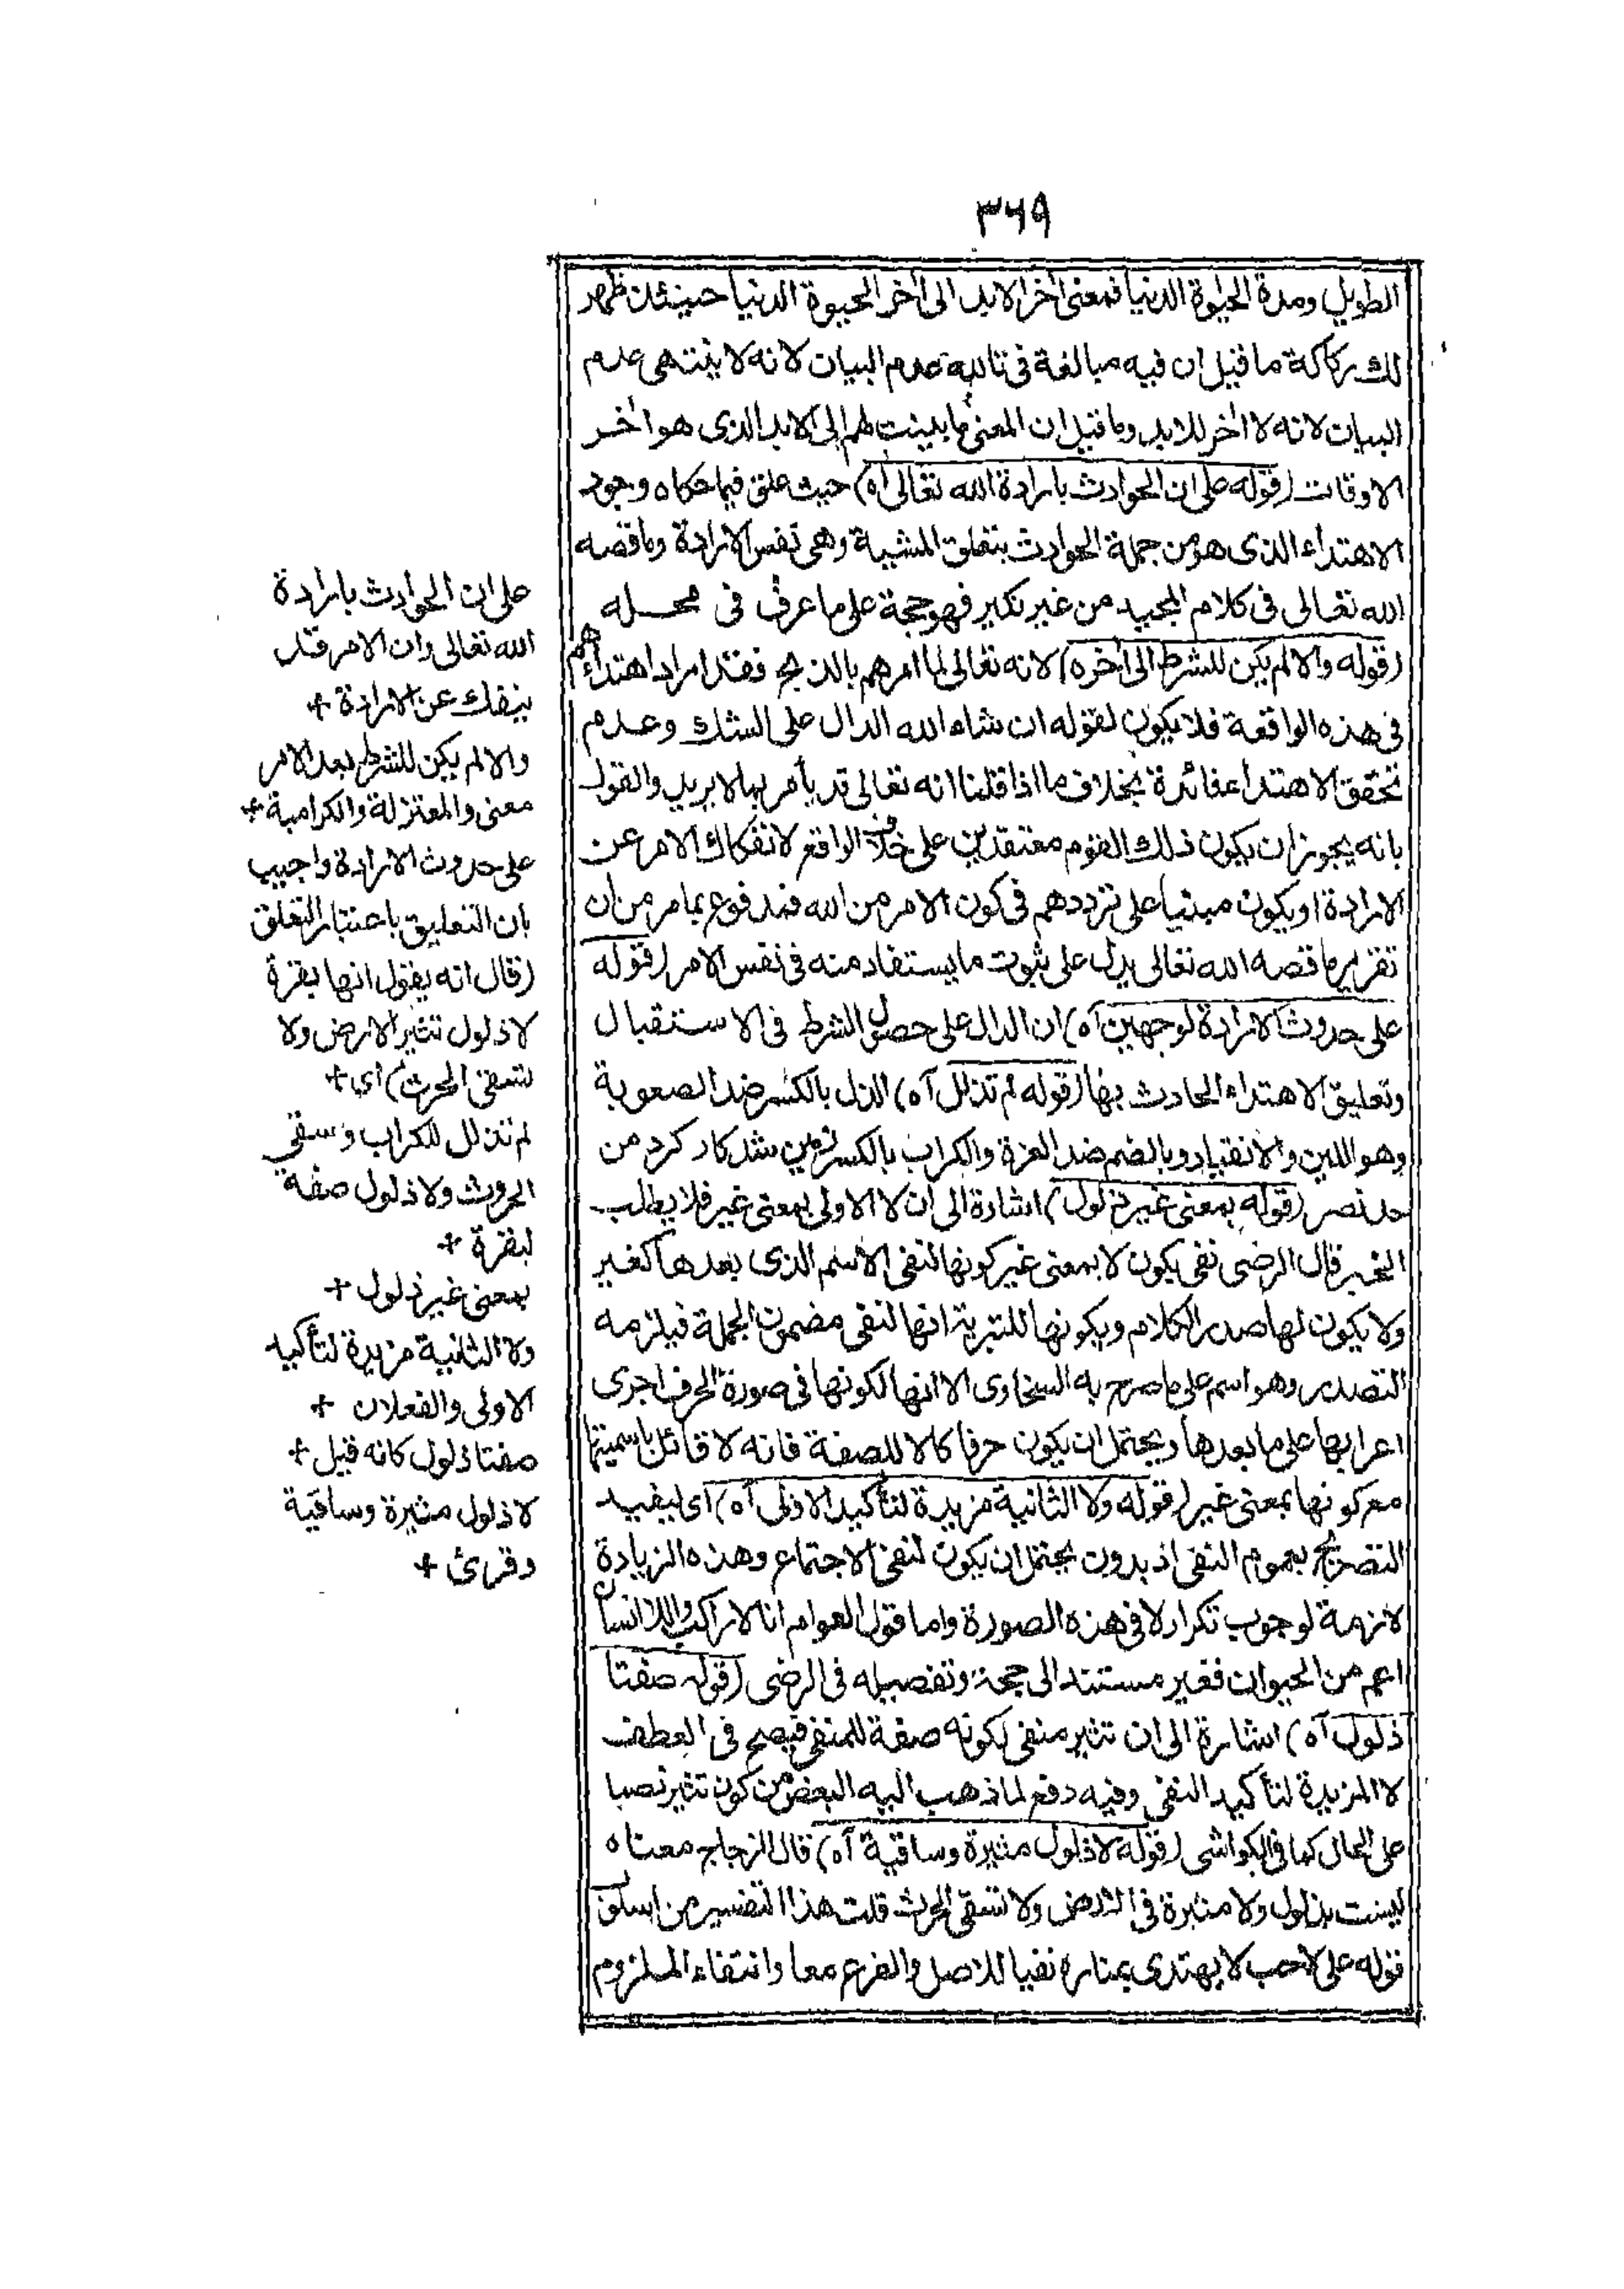 ٣٦٩
الطويل ومدة الحيوة الدنيا فمعنى اخر الابد الى اخر الحيوة الدنيا حينئذ ظهر
لك ركاكة ما قيل ان فيه مبالغة فى تابيد عدم البيان لانه لا ينتهى عدم
البيان لانه لا اخر للابد وما قيل ان المعنى ما بينت لهم الى الابد الذى هو اخر
الاوقات (قوله على ان الحوادث بارادة الله تعالى اه) حيث علق فيما حكاه وجود
الاهتداء الذى هو من جملة الحوادث بتعلق المشية وهى نفس الارادة وما قصه
الله تعالى فى كلام المجيد من غير نكير فهو حجة على ما عرف فى محله
(قوله والا لم يكن للشرط الى اخره) لانه تعالى لما امرهم بالذبح فقد اراد اهتداءهم
فى هذه الواقعة فلا يكون لقوله ان شاء الله الدال على الشك وعدم
تحقق الاهتداء فائدة بخلاف ما اذا قلنا انه تعالى قد يأمر بما لا يريد والقول
بانه يجوز ان يكون ذلك القوم معتقدين على خلاف الواقع لانفكاك الامر عن
الارادة او يكون مبنيا على ترددهم فى كون الامر من الله فمدفوع بما مر من ان
تقرير ما قصه الله تعالى يدل على ثبوت ما يستفاد منه فى نفس الامر (قوله
على حدوث الارادة لوجهين آه) ان الدال على حصول الشرط فى الاستقبال
وتعليق الاهتداء الحادث بها (قوله لم تذلل آه) الذل بالكسر ضد الصعوبة
وهو اللين والانقياد وبالضم ضد العزة والكراب بالكسر زمين شد كار كردن من
حد نصر (قوله بمعنى غير ذلول) اشارة الى ان لا الاولى بمعنى غير فلا يطلب
الخبر قال الرضى نفى يكون لا بمعنى غير كونها لنفى الاسم الذى بعدها كغير
ولا يكون لها صدر الكلام ويكونها للتبرية انها لنفى مضمون الجملة فيلزمه
التصدر وهو اسم على ما صرح به السخاوى الا انها لكونها فى صورة الحرف اجرى
اعرابها على ما بعدها ويحتمل ان يكون حرفا كالا للصفة فانه لا قائل باسميتها
مع كونها بمعنى غير (قوله ولا الثانية مزيدة لتأكيد الاولى آه) اى ليفيد
التصريح بعموم النفى اذ بدون يحتمل ان يكون لنفى الاجتماع وهذه الزيادة
لازمة لوجوب تكرار لا فى هذه الصورة واما قول العوام انا لا راكب واللا انسان
اعم من الحيوان فغير مستند الى حجة وتفصيله فى الرضى (قوله صفتا
ذلول آه) اشارة الى ان تثير منفى لكونه صفة للمنفى فيصح فى العطف
لا المزيدة لتأكيد النفى وفيه دفع لما ذهب اليه البعض من كون تثير نصبا
على الحال كما فى الكواشى (قوله لا ذلول مثيرة وساقية آه) قال الزجاج معناه
ليست بذلول ولا مثيرة فى الارض ولا تسقى الحرث قلت هذا التفسير من اسلوب
قوله على لاحب لا يهتدى بمناره نفيا للاصل والفرع معا وانتفاء الملزوم
على ان الحوادث بارادة
الله تعالى وان الامر قد
ينفك عن الارادة +
والا لم يكن للشرط بعد الامر
معنى والمعتزلة والكرامية +
على حدوث الارادة واجيب
بان التعليق باعتبار التعلق
(قال انه يقول انها بقرة
لا ذلول تثير الارض ولا
تسقى الحرث) اى +
لم تذلل للكراب وسقى
الحروث ولا ذلول صفة
لبقرة +
بمعنى غير ذلول +
ولا الثانية مزيدة لتأكيد
الاولى والفعلان +
صفتا ذلول كانه قيل +
لا ذلول مثيرة وساقية
وقرئ +